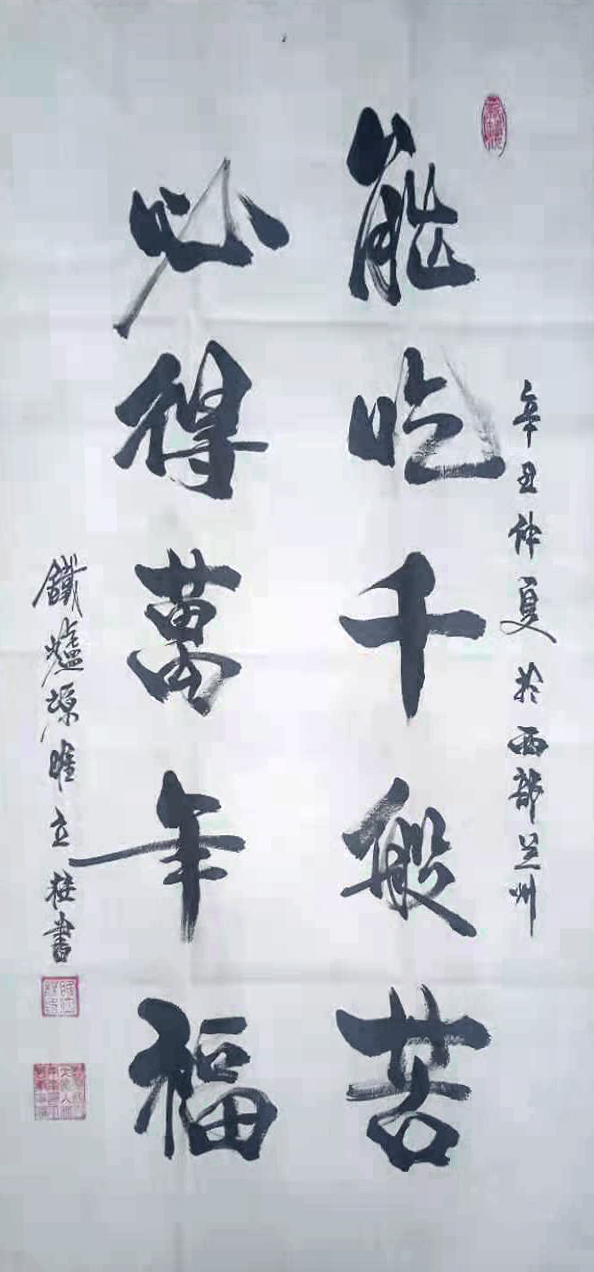 辛丑仲夏於西部兰州
能吃千般苦
必得萬年福
鐵爐塬 立柱書